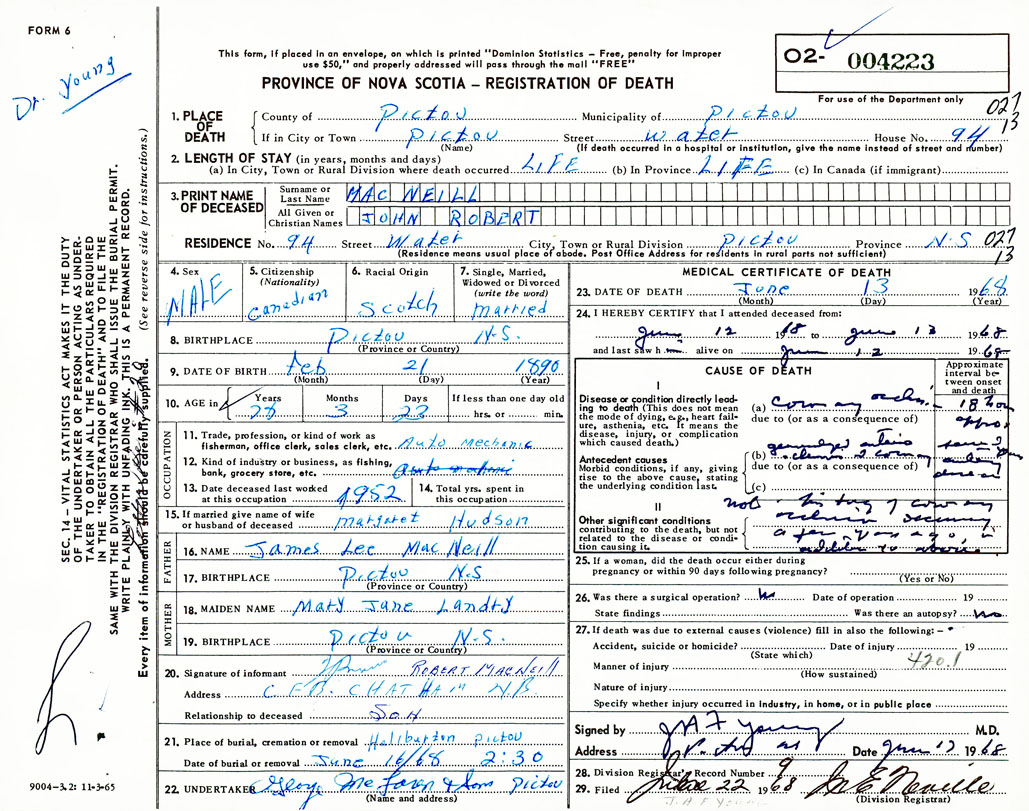 FORM 6
Dr. Young
This form, if placed in an envelope, on which is printed "Dominion Statistics – Free, penalty for improper
use $50," and properly addressed will pass through the mail "FREE"
PROVINCE OF NOVA SCOTIA – REGISTRATION OF DEATH
O2- 004223
For use of the Department only
027
13
1. PLACE OF DEATH
County of Pictou Municipality of Pictou
If in City or Town Pictou Street Water House No. 94
(Name) (If death occurred in a hospital or institution, give the name instead of street and number)
2. LENGTH OF STAY (in years, months and days)
(a) In City, Town or Rural Division where death occurred LIFE (b) In Province LIFE (c) In Canada (if immigrant)
3. PRINT NAME OF DECEASED
Surname or Last Name MAC NEILL
All Given or Christian Names JOHN ROBERT
RESIDENCE No. 94 Street Water City, Town or Rural Division Pictou Province N.S 027
(Residence means usual place of abode. Post Office Address for residents in rural parts not sufficient) 13
4. Sex MALE
5. Citizenship (Nationality) Canadian
6. Racial Origin Scotch
7. Single, Married, Widowed or Divorced (write the word) Married
8. BIRTHPLACE Pictou N.S.
(Province or Country)
9. DATE OF BIRTH Feb 21 1890
(Month) (Day) (Year)
10. AGE in Years Months 3 Days If less than one day old hrs. or min.
OCCUPATION
11. Trade, profession, or kind of work as
fisherman, office clerk, sales clerk, etc. Auto Mechanic
12. Kind of industry or business, as fishing,
bank, grocery store, etc.
13. Date deceased last worked
at this occupation 1952
14. Total yrs. spent in
this occupation
15. If married give name of wife
or husband of deceased Margaret Hudson
FATHER
16. NAME James Lee Mac Neill
17. BIRTHPLACE Pictou N.S
(Province or Country)
MOTHER
18. MAIDEN NAME Mary Jane Landry
19. BIRTHPLACE Pictou N.S.
(Province or Country)
20. Signature of informant ROBERT MACNEILL
Address C.F.B. CHATHAM N.B.
Relationship to deceased Son
21. Place of burial, cremation or removal Haliburton Pictou
Date of burial or removal June 16/68 2:30
22. UNDERTAKER & Sons Pictou
(Name and address)
MEDICAL CERTIFICATE OF DEATH
23. DATE OF DEATH June 13 1968
(Month) (Day) (Year)
24. I HEREBY CERTIFY that I attended deceased from:
June 12 19 68 to June 13 1968
and last saw h im alive on June 12 1968
CAUSE OF DEATH
Approximate
interval between
onset
and death
I
Disease or condition directly leading
to death (This does not mean
the mode of dying, e.g., heart failure,
asthenia, etc. It means the
disease, injury, or complication
which caused death.)
(a) coronary 18 hours
due to (or as a consequence of)
(b)
due to (or as a consequence of)
(c)
Antecedent causes
Morbid conditions, if any, giving
rise to the above cause, stating
the underlying condition last.
II
Other significant conditions
contributing to the death, but not
related to the disease or condition
causing it.
25. If a woman, did the death occur either during
pregnancy or within 90 days following pregnancy?
(Yes or No)
26. Was there a surgical operation? No Date of operation 19
State findings Was there an autopsy? No
27. If death was due to external causes (violence) fill in also the following: –
Accident, suicide or homicide? Date of injury 19
(State which) 420.1
Manner of injury
(How sustained)
Nature of injury
Specify whether injury occurred in Industry, in home, or in public place
Signed by J A F Young M.D.
Address Date June 1968
28. Division Registrar's Record Number 9
29. Filed June 22 1968 Neville
(Division Registrar)
J.A F Young
SEC. 14 – VITAL STATISTICS ACT MAKES IT THE DUTY
OF THE UNDERTAKER OR PERSON ACTING AS UNDERTAKER
TO OBTAIN ALL THE PARTICULARS REQUIRED
IN THE "REGISTRATION OF DEATH" AND TO FILE THE
SAME WITH THE DIVISION REGISTRAR WHO SHALL ISSUE THE BURIAL PERMIT.
WRITE PLAINLY WITH UNFADING INK. THIS IS A PERMANENT RECORD.
Every item of information should be carefully supplied. (See reverse side for instructions.)
9004-3.2: 11-3-65